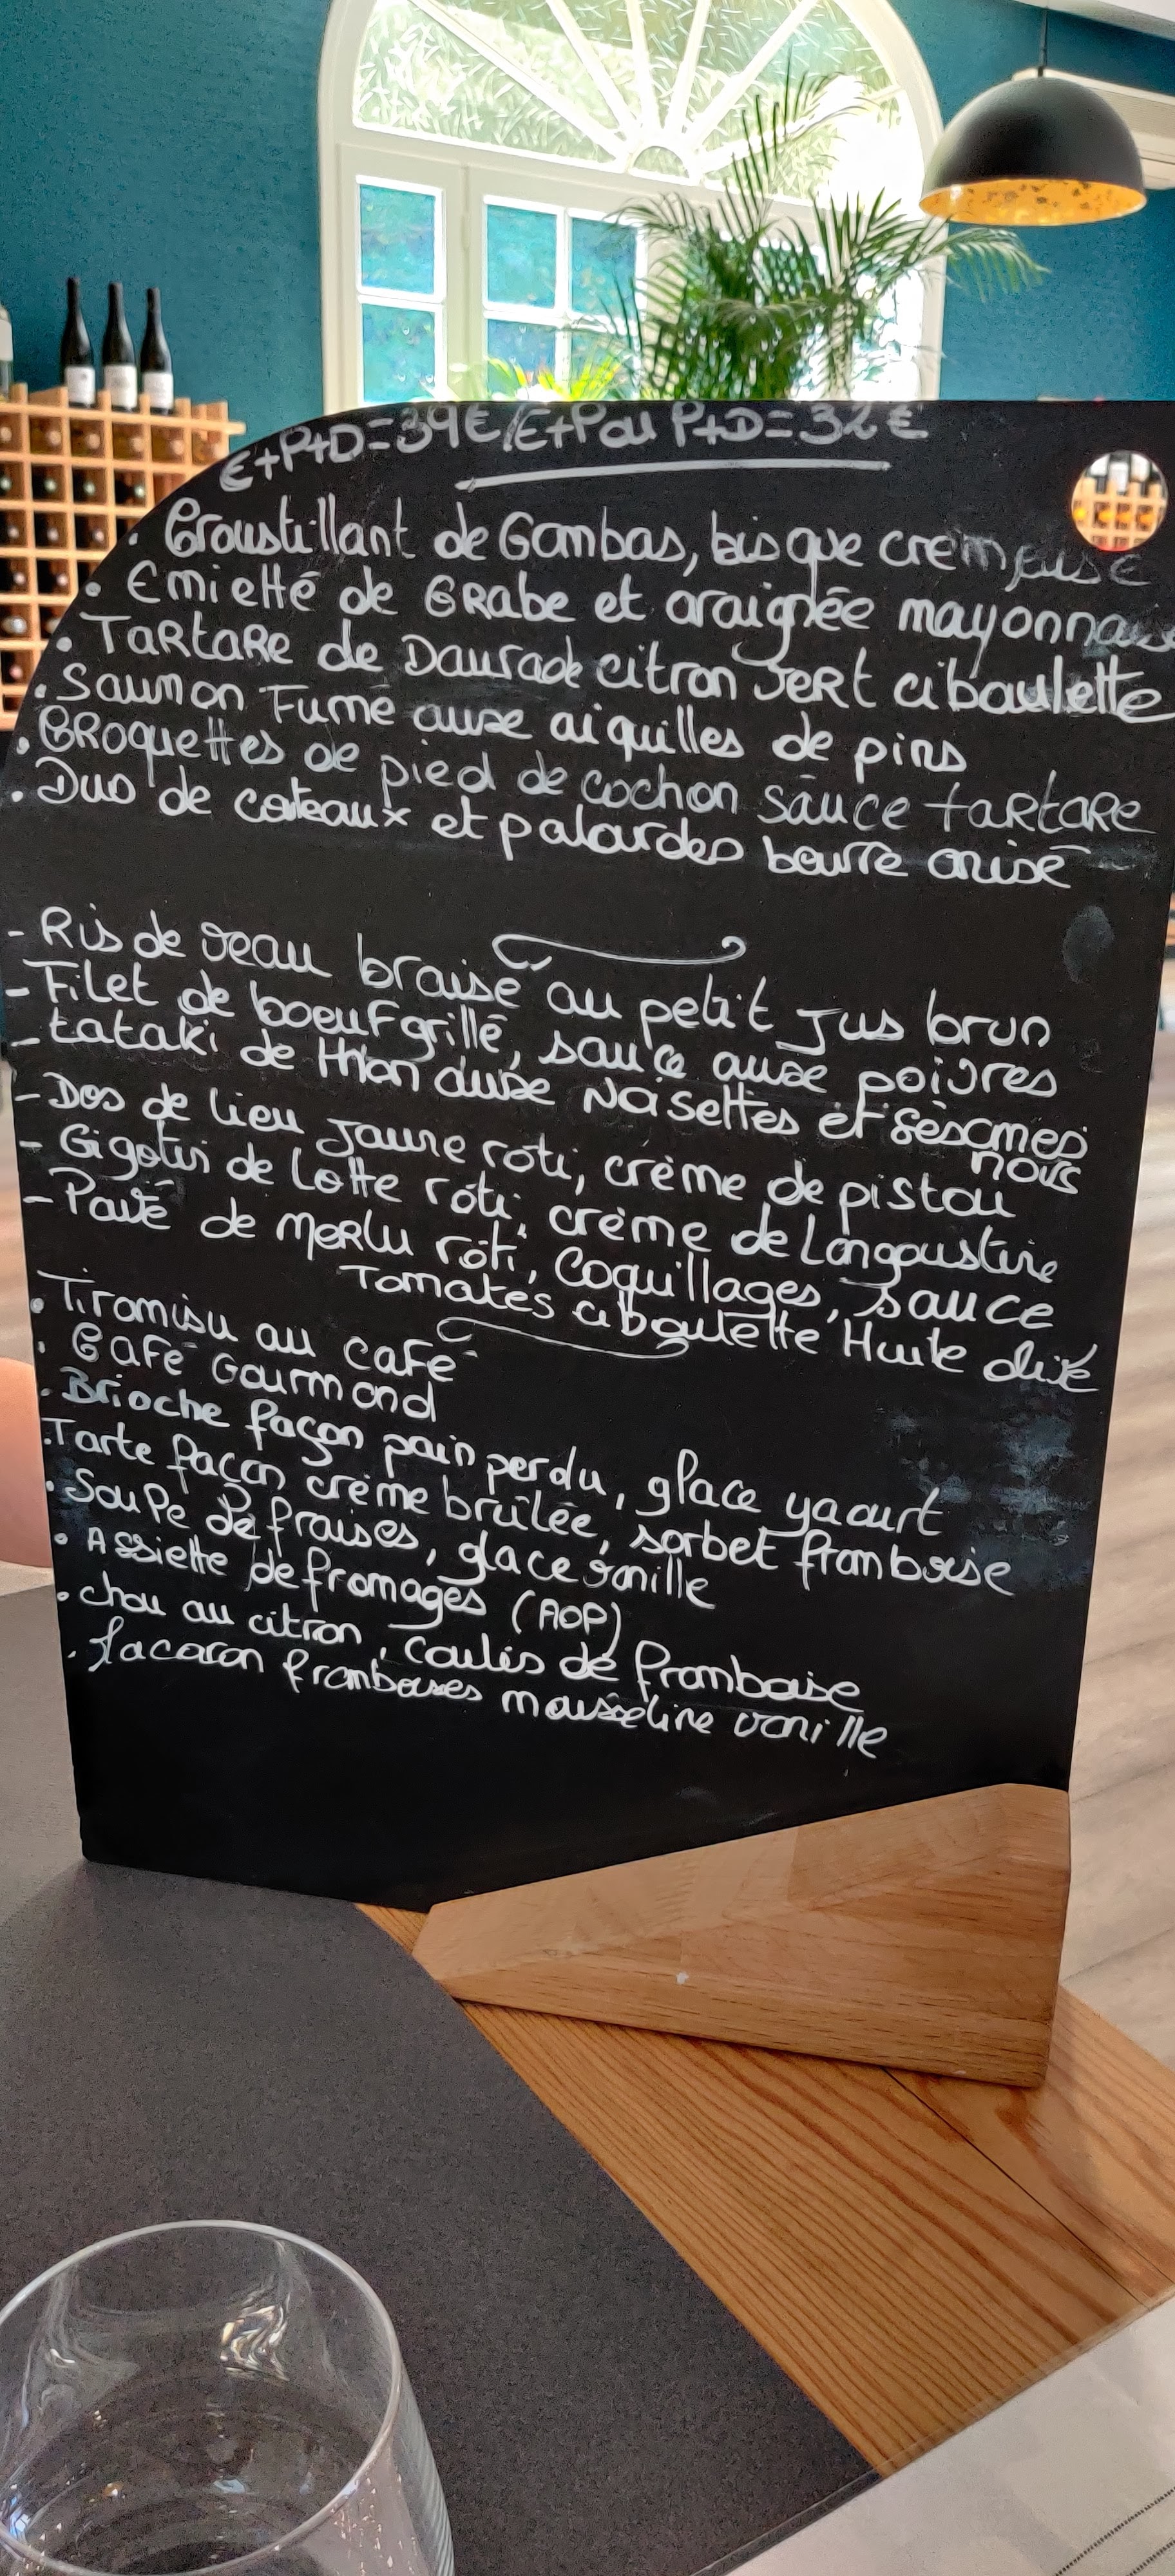 E+P+D=39€/E+P ou P+D=32€
. Croustillant de Gambas, bisque cremeuse
. Emietté de Crabe et araignée mayonnaise
. Tartare de Daurade citron vert ciboulette
. Saumon Fumé aux aiguilles de pins
. Croquettes de pied de cochon sauce tartare
. Duo de coteaux et palourdes beurre anisé
- Ris de veau braisé au petit jus brun
- Filet de boeuf grillé, sauce aux poivres
- tataki de thon aux Noisettes et sésames
noirs
- Dos de lieu jaune rôti, crème de pistou
- Gigotin de Lotte rôti, crème de Langoustine
- Pavé de merlu rôti, Coquillages, sauce
Tomates ciboulette Huile olive
. Tiramisu au café
. Café Gourmand
. Brioche façon pain perdu, glace yaourt
. Tarte façon crème brûlée, sorbet framboise
. Soupe de fraises, glace vanille
. Assiette de fromages (AOP)
. chou au citron, coulis de framboise
. Macaron framboises mousseline vanille